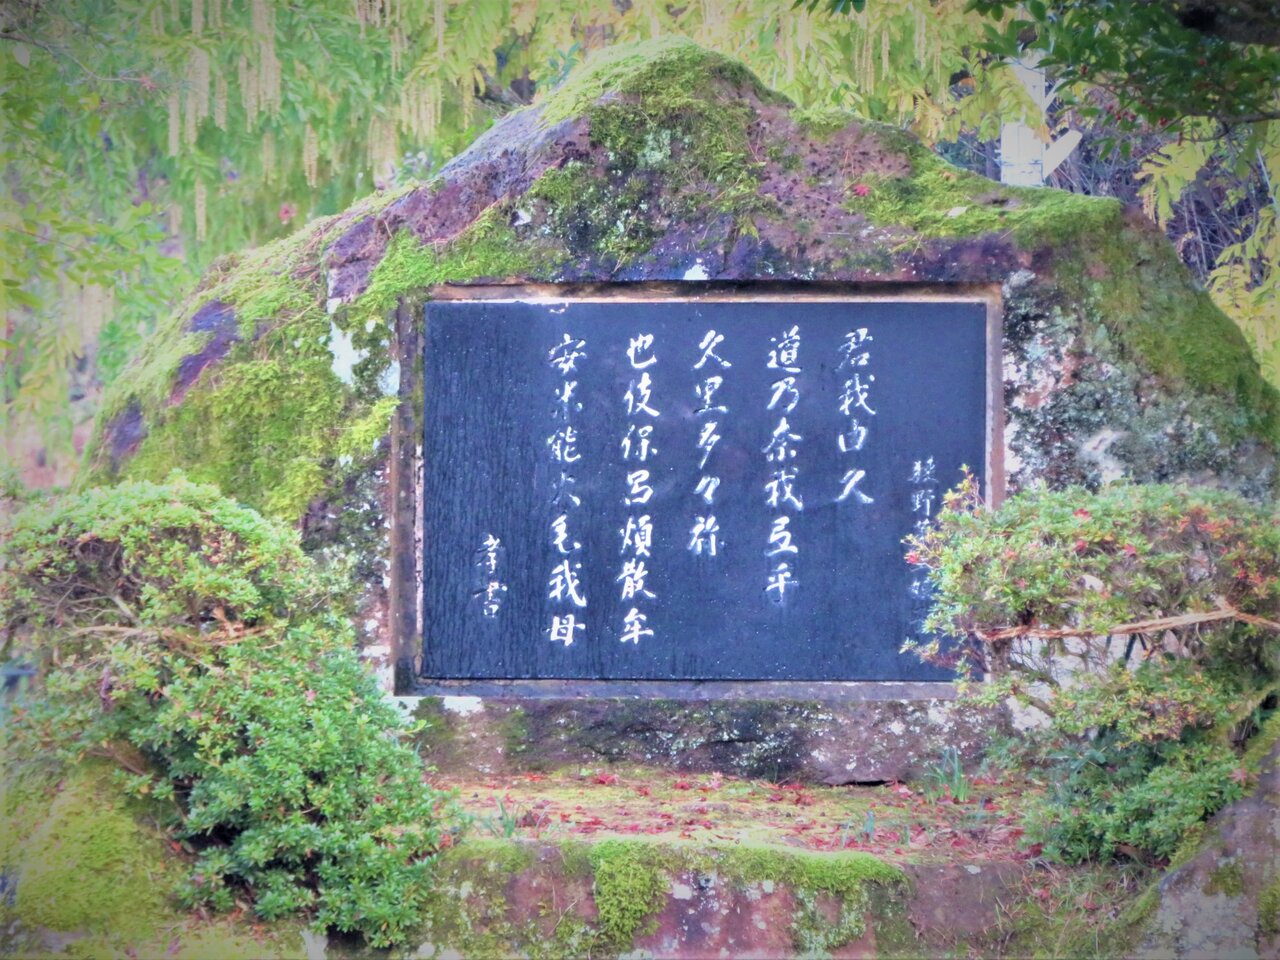 狭野
君我由久
道乃奈我弖乎
久里多々祢
也伎保呂煩散牟
安米能火毛我母
孝書